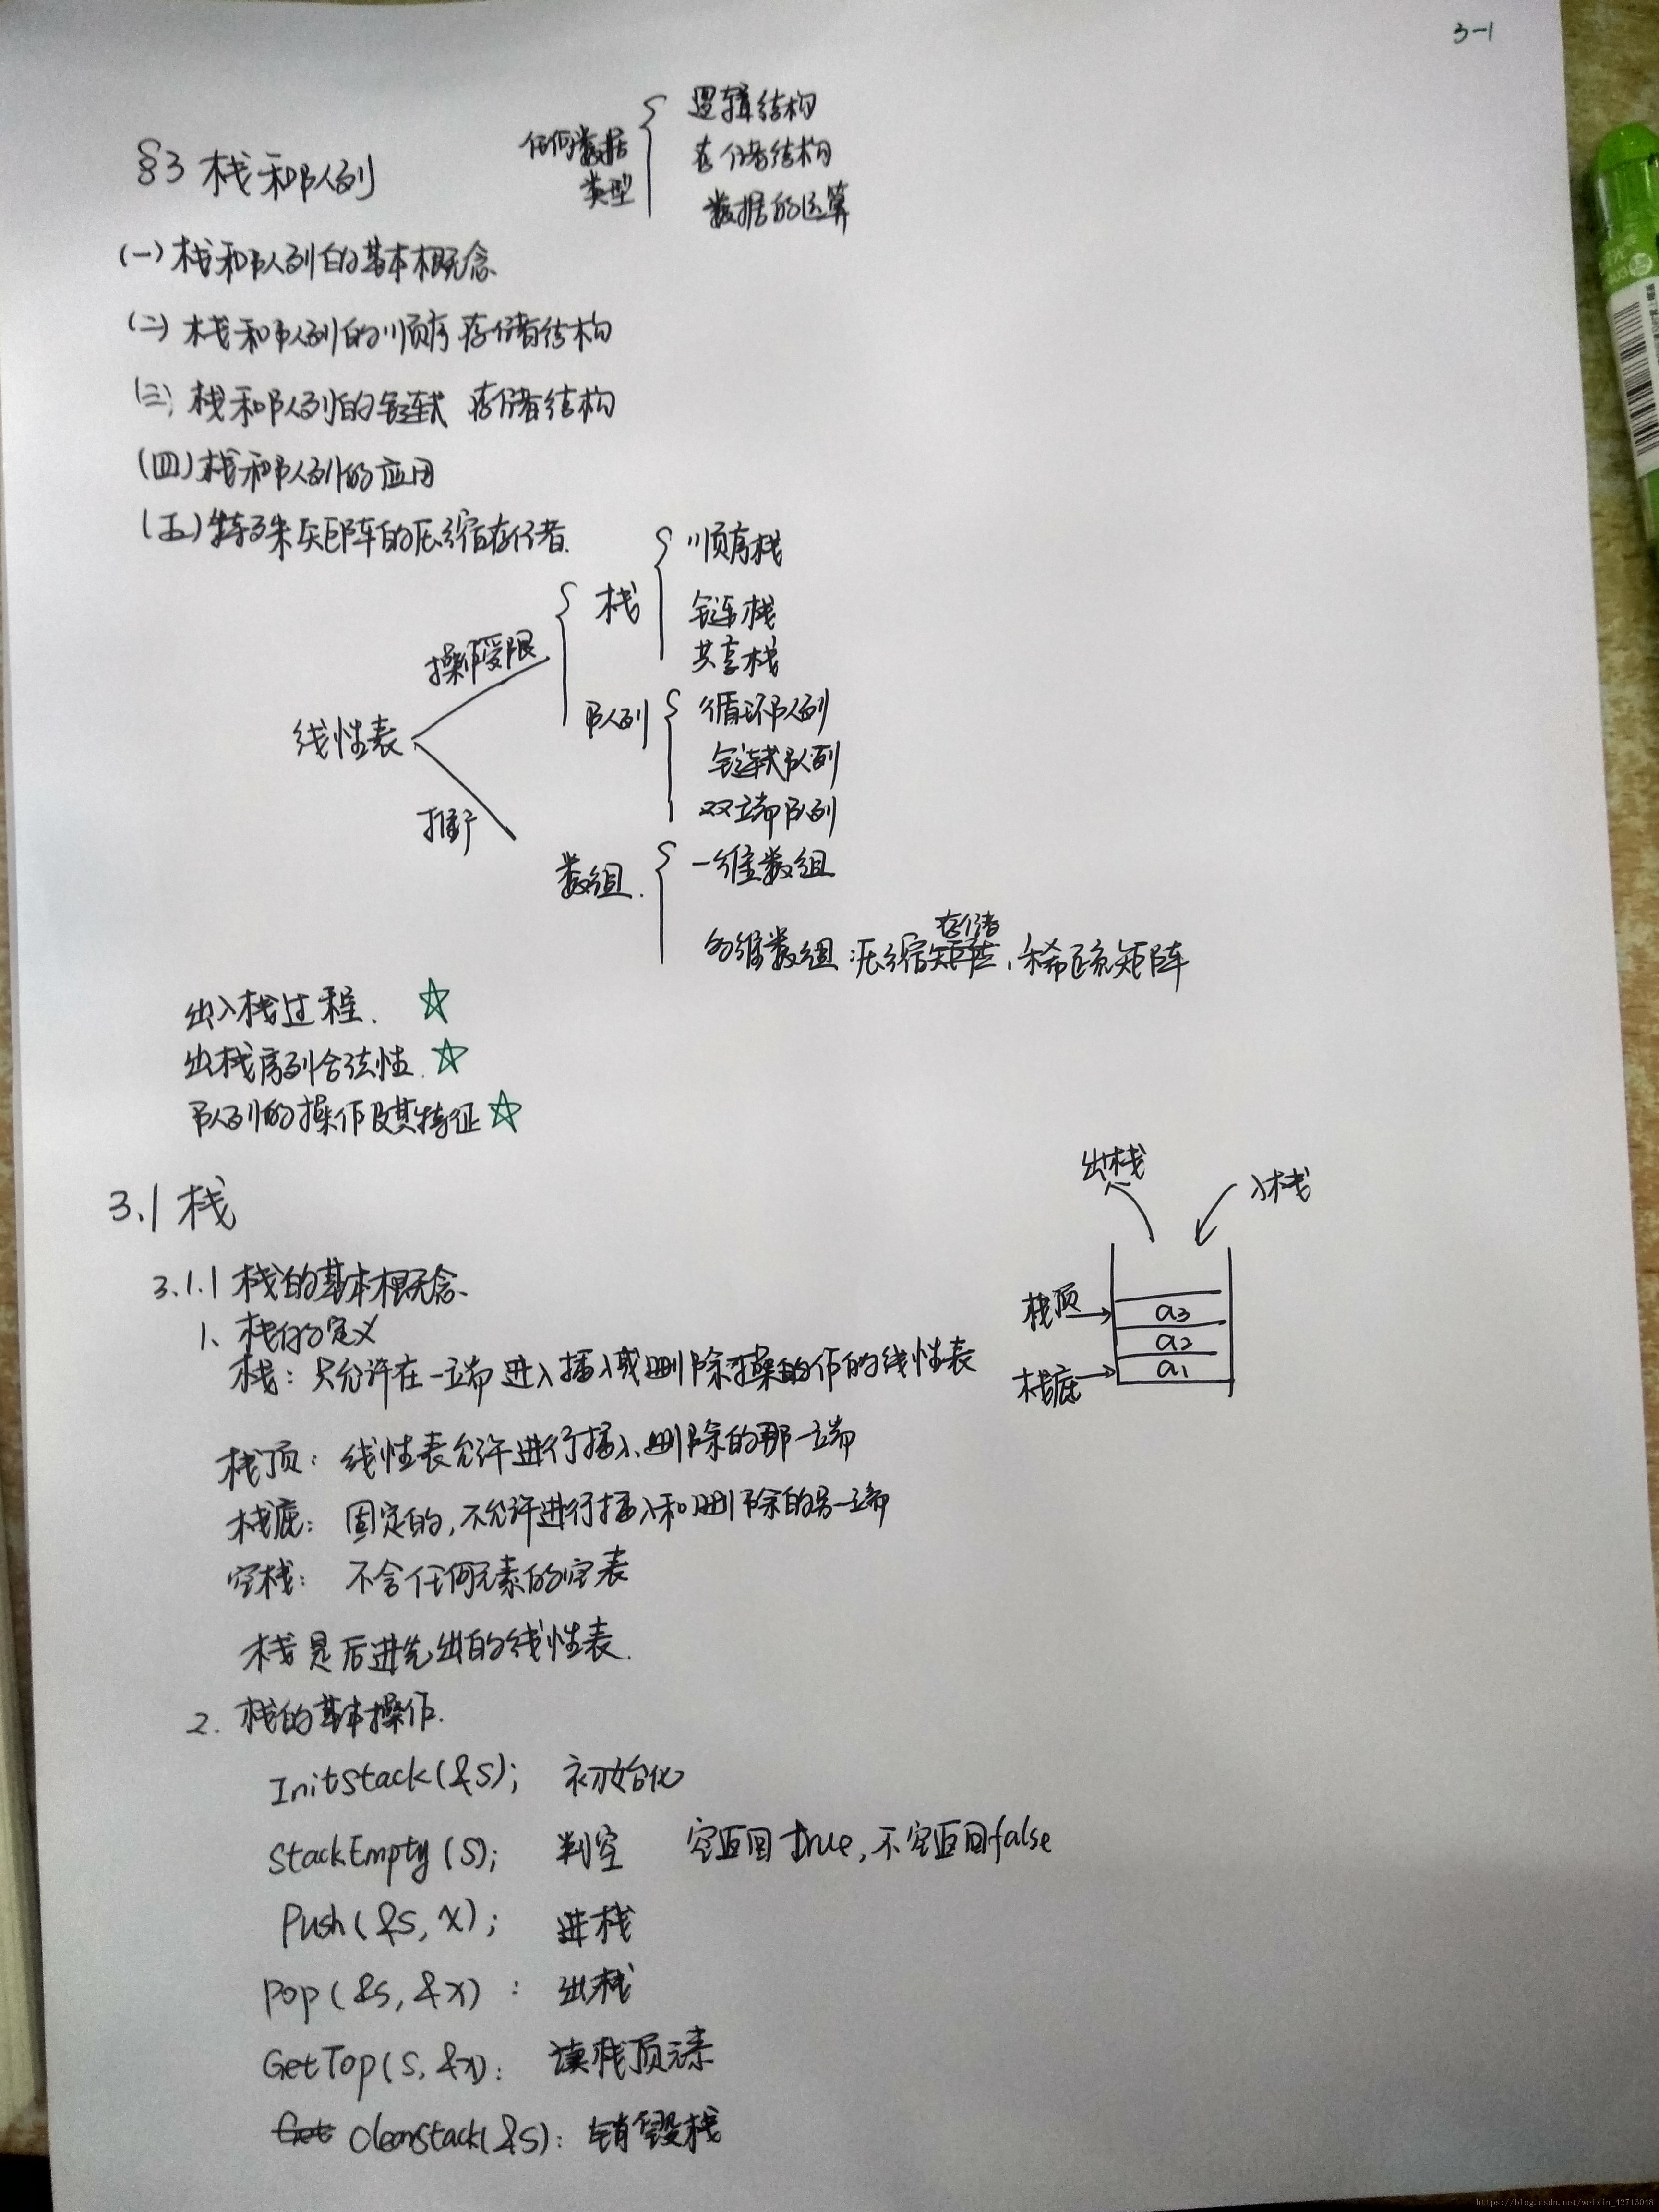 3-1
§3 栈和队列
任何数据
类型
逻辑结构
存储结构
数据的运算
(一) 栈和队列的基本概念
(二) 栈和队列的顺序存储结构
(三) 栈和队列的链式 存储结构
(四) 栈和队列的应用
(五) 特殊矩阵的压缩存储.
线性表
操作受限
栈
顺序栈
链栈
共享栈
队列
循环队列
链式队列
双端队列
推广
数组.
一维数组
多维数组:压缩存储,稀疏矩阵
出入栈过程. ☆
出栈序列合法性. ☆
队列的操作及其特征 ☆
3.1 栈
3.1.1 栈的基本概念.
1、栈的定义
栈: 只允许在一端进入插入或删除操作的线性表
出栈
入栈
栈顶
栈底
a3
a2
a1
栈顶: 线性表允许进行插入、删除的那一端
栈底: 固定的,不允许进行插入和删除的另一端
空栈: 不含任何元素的空表
栈是后进先出的线性表.
2. 栈的基本操作.
InitStack(&S); 初始化
StackEmpty(S); 判空 空返回true,不空返回false
Push(&S, x); 进栈
Pop(&S, &x): 出栈
GetTop(S, &x): 读栈顶元素
ClearStack(&S): 销毁栈
https://blog.csdn.net/weixin_42713048